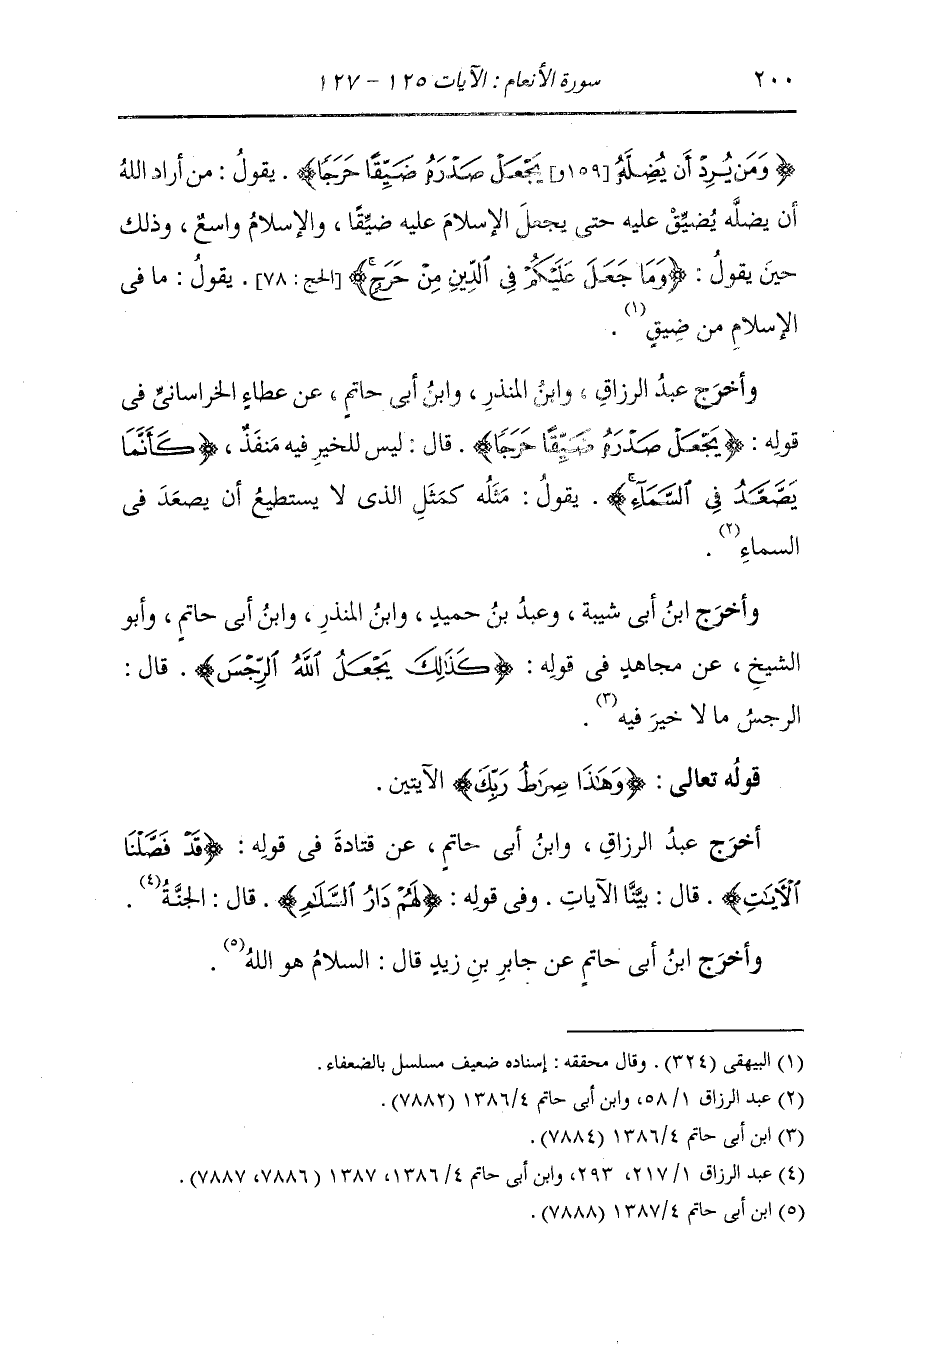 ٢٠٠ سورة الأنعام : الآيات ١٢٥ - ١٢٧
﴿ وَمَن يُرِدْ أَن يُضِلَّهُ [١٥٩و] يَجْعَلْ صَدْرَهُ ضَيِّقًا حَرَجًا﴾ . يقولُ : من أراد اللهُ
أن يضلَّه يُضيِّقْ عليه حتى يجعلَ الإسلامَ عليه ضيِّقًا ، والإسلامُ واسعٌ ، وذلك
حينَ يقولُ : ﴿وَمَا جَعَلَ عَلَيْكُمْ فِي ٱلدِّينِ مِنْ حَرَجٍ﴾ [الحج : ٧٨] . يقولُ : ما فى
الإسلامِ من ضِيقٍ(١) .
وأخرَج عبدُ الرزاقِ ، وابنُ المنذرِ ، وابنُ أبى حاتمٍ ، عن عطاءٍ الخراسانىِّ فى
قولِه : ﴿يَجْعَلْ صَدْرَهُ ضَيِّقًا حَرَجًا﴾ . قال : ليس للخيرِ فيه مَنفَذٌ ، ﴿كَأَنَّمَا
يَصَّعَّدُ فِي ٱلسَّمَآءِ﴾ . يقولُ : مَثَلُه كمَثَلِ الذى لا يستطيعُ أن يصعَدَ فى
السماءِ(٢) .
وأخرَج ابنُ أبى شيبة ، وعبدُ بنُ حميدٍ ، وابنُ المنذرِ ، وابنُ أبى حاتمٍ ، وأبو
الشيخِ ، عن مجاهدٍ فى قولِه : ﴿كَذَٰلِكَ يَجْعَلُ ٱللَّهُ ٱلرِّجْسَ﴾ . قال :
الرجسُ ما لا خيرَ فيه(٣) .
قولُه تعالى : ﴿وَهَٰذَا صِرَٰطُ رَبِّكَ﴾ الآيتين .
أخرَج عبدُ الرزاقِ ، وابنُ أبى حاتمٍ ، عن قتادةَ فى قولِه : ﴿قَدْ فَصَّلْنَا
ٱلْءَايَٰتِ﴾ . قال : بيَّنَّا الآياتِ . وفى قولِه : ﴿لَهُمْ دَارُ ٱلسَّلَٰمِ﴾ . قال : الجنَّةُ(٤) .
وأخرَج ابنُ أبى حاتمٍ عن جابرِ بنِ زيدٍ قال : السلامُ هو اللهُ(٥) .
(١) البيهقى (٣٢٤) . وقال محققه : إسناده ضعيف مسلسل بالضعفاء .
(٢) عبد الرزاق ١/ ٥٨، وابن أبى حاتم ٤/ ١٣٨٦ (٧٨٨٢) .
(٣) ابن أبى حاتم ٤/ ١٣٨٦ (٧٨٨٤) .
(٤) عبد الرزاق ١/ ٢١٧، ٢٩٣، وابن أبى حاتم ٤/ ١٣٨٦، ١٣٨٧ ( ٧٨٨٦، ٧٨٨٧) .
(٥) ابن أبى حاتم ٤/ ١٣٨٧ (٧٨٨٨) .